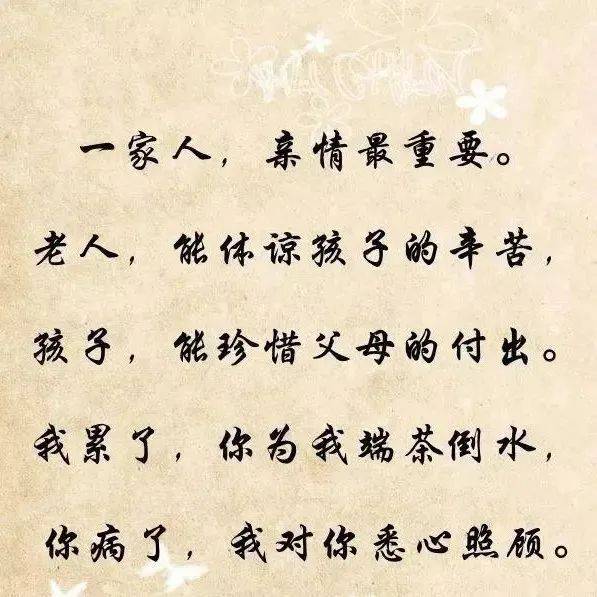 一家人，亲情最重要。
老人，能体谅孩子的辛苦，
孩子，能珍惜父母的付出。
我累了，你为我端茶倒水，
你病了，我对你悉心照顾。